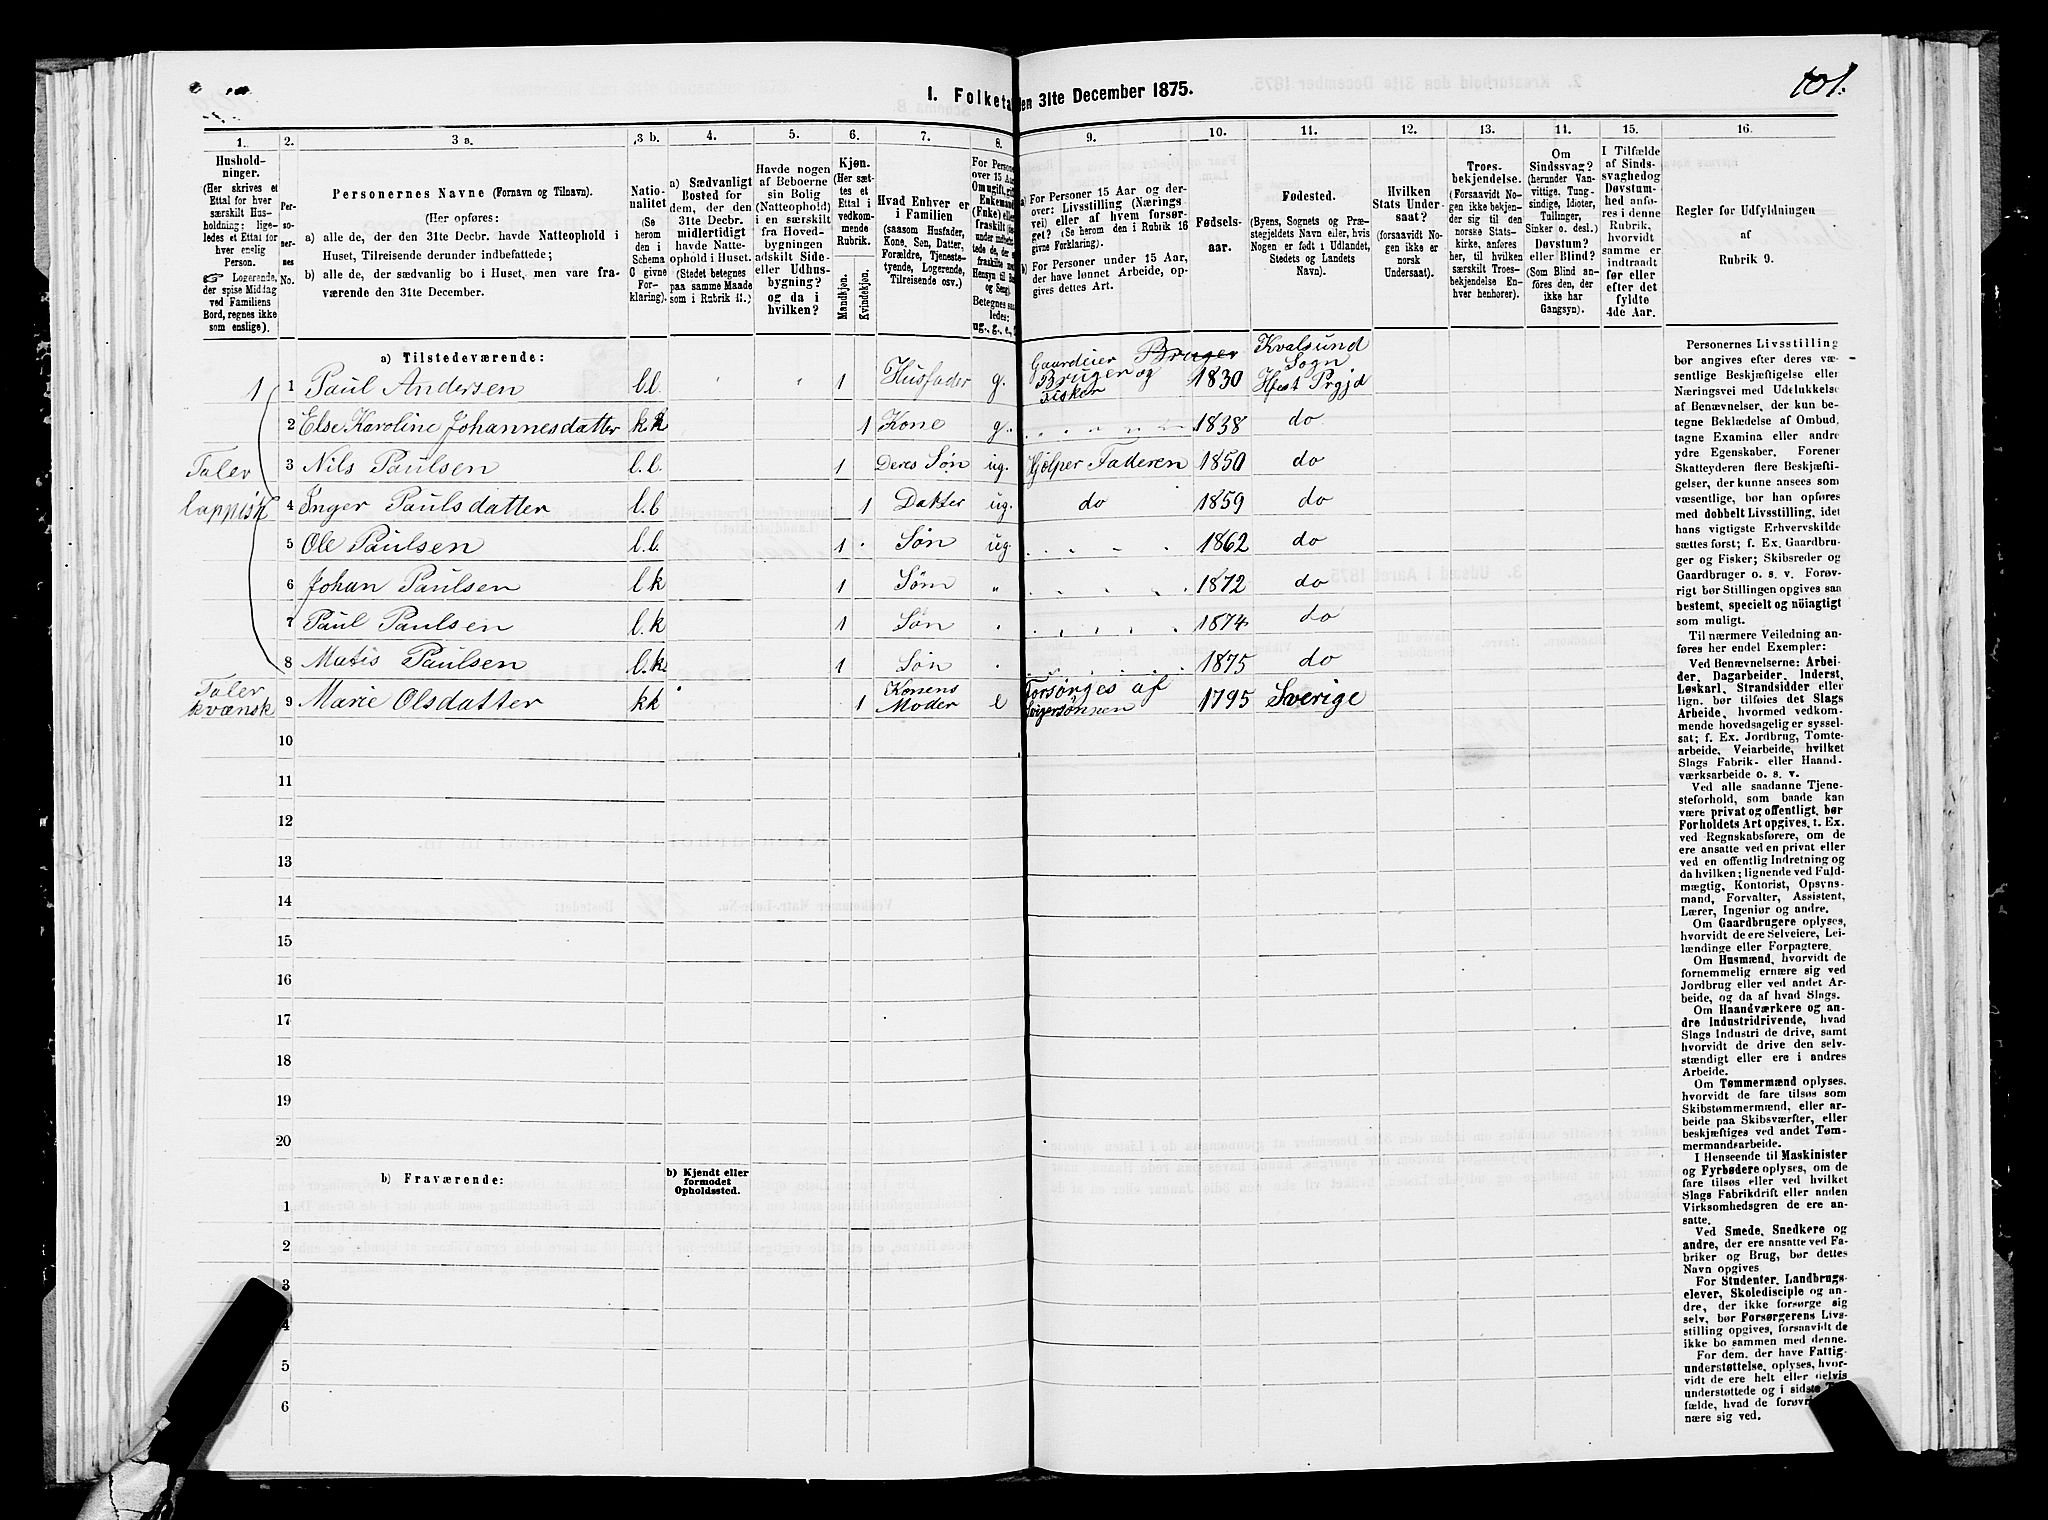 I. Folketa
en 31te December 1875.
101.
1.
2.
3 a.
3 b.
4.
5.
6.
7.
8.
9.
10.
11.
12.
13.
14.
15.
16.
Hushold-
ninger.
(Her skrives et
Ettal for hver
særskilt Hus-
holdning; lige-
ledes et Ettal for
hver enslig
Person.
☞ Logerende,
der spise Middag
ved Familiens
Bord, regnes ikke
som enslige).
Per-
so-
ner-
nes
No.
Personernes Navne (Fornavn og Tilnavn).
(Her opføres:
a) alle de, der den 31te Decbr. havde Natteophold i
Huset, Tilreisende derunder indbefattede;
b) alle de, der sædvanlig bo i Huset, men vare fra-
værende den 31te December.
Natio-
nalitet
(Se
herom
den i
Schema
O givne
For-
klaring).
a) Sædvanligt
Bosted for
dem, der den
31te Decbr.
midlertidigt
havde Natte-
ophold i Huset.
(Stedet betegnes
paa samme Maade
som i Rubrik 11.)
Havde nogen
af Beboerne
sin Bolig
(Natteophold)
i en særskilt
fra Hoved-
bygningen
adskilt Side-
eller Udhus-
bygning?
og da i
hvilken?
Kjøn.
(Her sæt-
tes et
Ettal i
vedkom-
mende
Rubrik.
Mandkjøn.
Kvindekjøn.
Hvad Enhver er
i Familien
(saasom Husfader,
Kone, Søn, Datter,
Forældre, Tjeneste-
tyende, Logerende,
Tilreisende osv.)
For Persone
over 15 Aar
Om ugift, gift
Enkemand
(Enke) eller
fraskilt
Betegnes saa-
ledes:
ug., g., e.,
a) For Personer 15 Aar og der-
over: Livsstilling (Nærings
vei) eller af hvem forsør-
get? (Se herom den i Rubrik 16
givne Forklaring).
b) For Personer under 15 Aar,
der have lønnet Arbeide, op-
gives dettes Art.
Fødsels-
aar.
Fødested.
(Byens, Sognets og Præ-
stegjeldets Navn eller, hvis
Nogen er født i Udlandet,
Stedets og Landets
Navn).
Hvilken
Stats Under-
saat?
(forsaavidt No-
gen ikke er
norsk
Undersaat).
Troes-
bekjendelse.
(Forsaavidt No-
gen ikke bekjen-
der sig til den
norske Stats-
kirke, anføres
her, til hvilken
særskilt Troes-
bekjendelse En-
hver henhorer).
Om
Sindssvag?
(herunder Van-
vittige, Tung-
sindige, Idioter,
Tullinger,
Sinker o. desl.)
Døvstum?
eller Blind?
(Som Blind an-
føres den, der
ikke har
Gangsyn).
I Tilfælde
af Sinds-
svaghed og
Døvstum-
hed anfø-
res i denne
Rubrik,
hvorvidt
samme er
indtraadt
før eller
efter det
fyldte
4de Aar.
Regler for Udfyldningen
af
Rubrik 9.
a) Tilstedeværende:
1 1 Paul Andersen l.l. 1 Husfader g. Gaardeier Bruger og Fisker 1830 Kvalsund Sogn
2 Else Karoline Johannesdatter k.k 1 Kone g. 1838 do
Taler 3 Nils Paulsen l.l. 1 Deres Søn ug. Hjelper Faderen 1850 do
lappisk 4 Inger Paulsdatter l.l 1 Datter ug. do 1859 do
5 Ole Paulsen l.l. 1 Søn ug 1862 do
6 Johan Paulsen l.k 1 Søn " 1872 do
7 Paul Paulsen l.k 1 Søn 1874 do
8 Matis Paulsen l.k 1 Søn 1875 do
Taler kvænsk 9 Marie Olsdatter kk 1 Konens Moder e Forsørges af 1795 Sverige
10
11
12
13
14
15
16
17
18
19
20
b) Fraværende:
b) Kjendt eller
formodet
Opholdssted.
1
2
3
4
5
6
Personernes Livsstilling
bør angives efter deres væ-
sentlige Beskjæftigelse eller
Næringsvei med Udelukkelse
af Benævnelser, der kun be-
tegne Beklædelse af Ombud,
tagne Examina eller andre
ydre Egenskaber. Forener
Skatteyderen flere Beskjæfti-
gelser, der kunne ansees som
væsentlige, bør han opføres
med dobbelt Livsstilling, idet
hans vigtigste Erhvervskilde
sættes først; f. Ex. Gaardbru-
ger og Fisker; Skibsreder og
Gaardbruger o. s. v. Forøv-
rigt bør Stillingen opgives saa
bestemt, specielt og nöiagtigt
som muligt.
Til nærmere Veiledning an-
føres her endel Exempler:
Ved Benævnelserne: Arbei-
der, Dagarbeider, Inderst,
Løskarl, Strandsidder eller
lign. bør tilføies det Slags
Arbeide, hvormed vedkom-
mende hovedsagelig er syssel-
sat; f. Ex. Jordbrug, Tomte-
arbeide, Veiarbeide, hvilket
Slags Fabrik- eller Haand-
værksarbeide o. s. v.
Ved alle saadanne Tjene-
steforhold, som baade kan
være privat og offentligt, bør
Forholdets Art opgives, t. Ex.
ved Regnskabsførere, om de
ere ansatte ved en privat eller
ved en offentlig Indretning og
da hvilken; lignende ved Fuld-
mægtig, Kontorist, Opsyns-
mand, Forvalter, Assistent,
Lærer, Ingeniør og andre.
Om Gaardbrugere oplyses,
hvorvidt de ere Selveiere, Lei-
lændinge eller Forpagtere.
Om Husmænd, hvorvidt de
fornemmelig ernære sig ved
Jordbrug eller ved andet Ar-
beide, og da af hvad Slags.
Om Haandværkere og an-
dre Industridrivende, hvad
Slags Industri de drive, samt
hvorvidt de drive den selv-
stændigt eller ere i andres
Arbeide.
Om Tømmermænd oplyses,
hvorvidt de fare tilsøs som
Skibstømmermænd, eller ar-
beide paa Skibsværfter, eller
beskjæftiges ved andet Tøm-
mermandsarbeide.
I Henseende til Maskinister
og Fyrbødere oplyses, om de
fare tilsøs eller ved hvilket
Slags Fabrikdrift eller anden
Virksomhedsgren de ere an-
satte.
Ved Smede, Snedkere og
andre, der ere ansatte ved Fa-
briker og Brug, bør dettes
Navn opgives
For Studenter, Landbrugs-
elever, Skoledisciple og an-
dre, der ikke forsørge sig
selv, bør Forsørgerens Livs-
stilling opgives, forsaavidt de
ikke bo sammen med denne.
For dem, der have Fattig-
understøttelse, oplyses, hvor-
vidt de ere helt eller delvis
understøttede og i sidste
fælde, hvad de forøvr
nære sig ved.